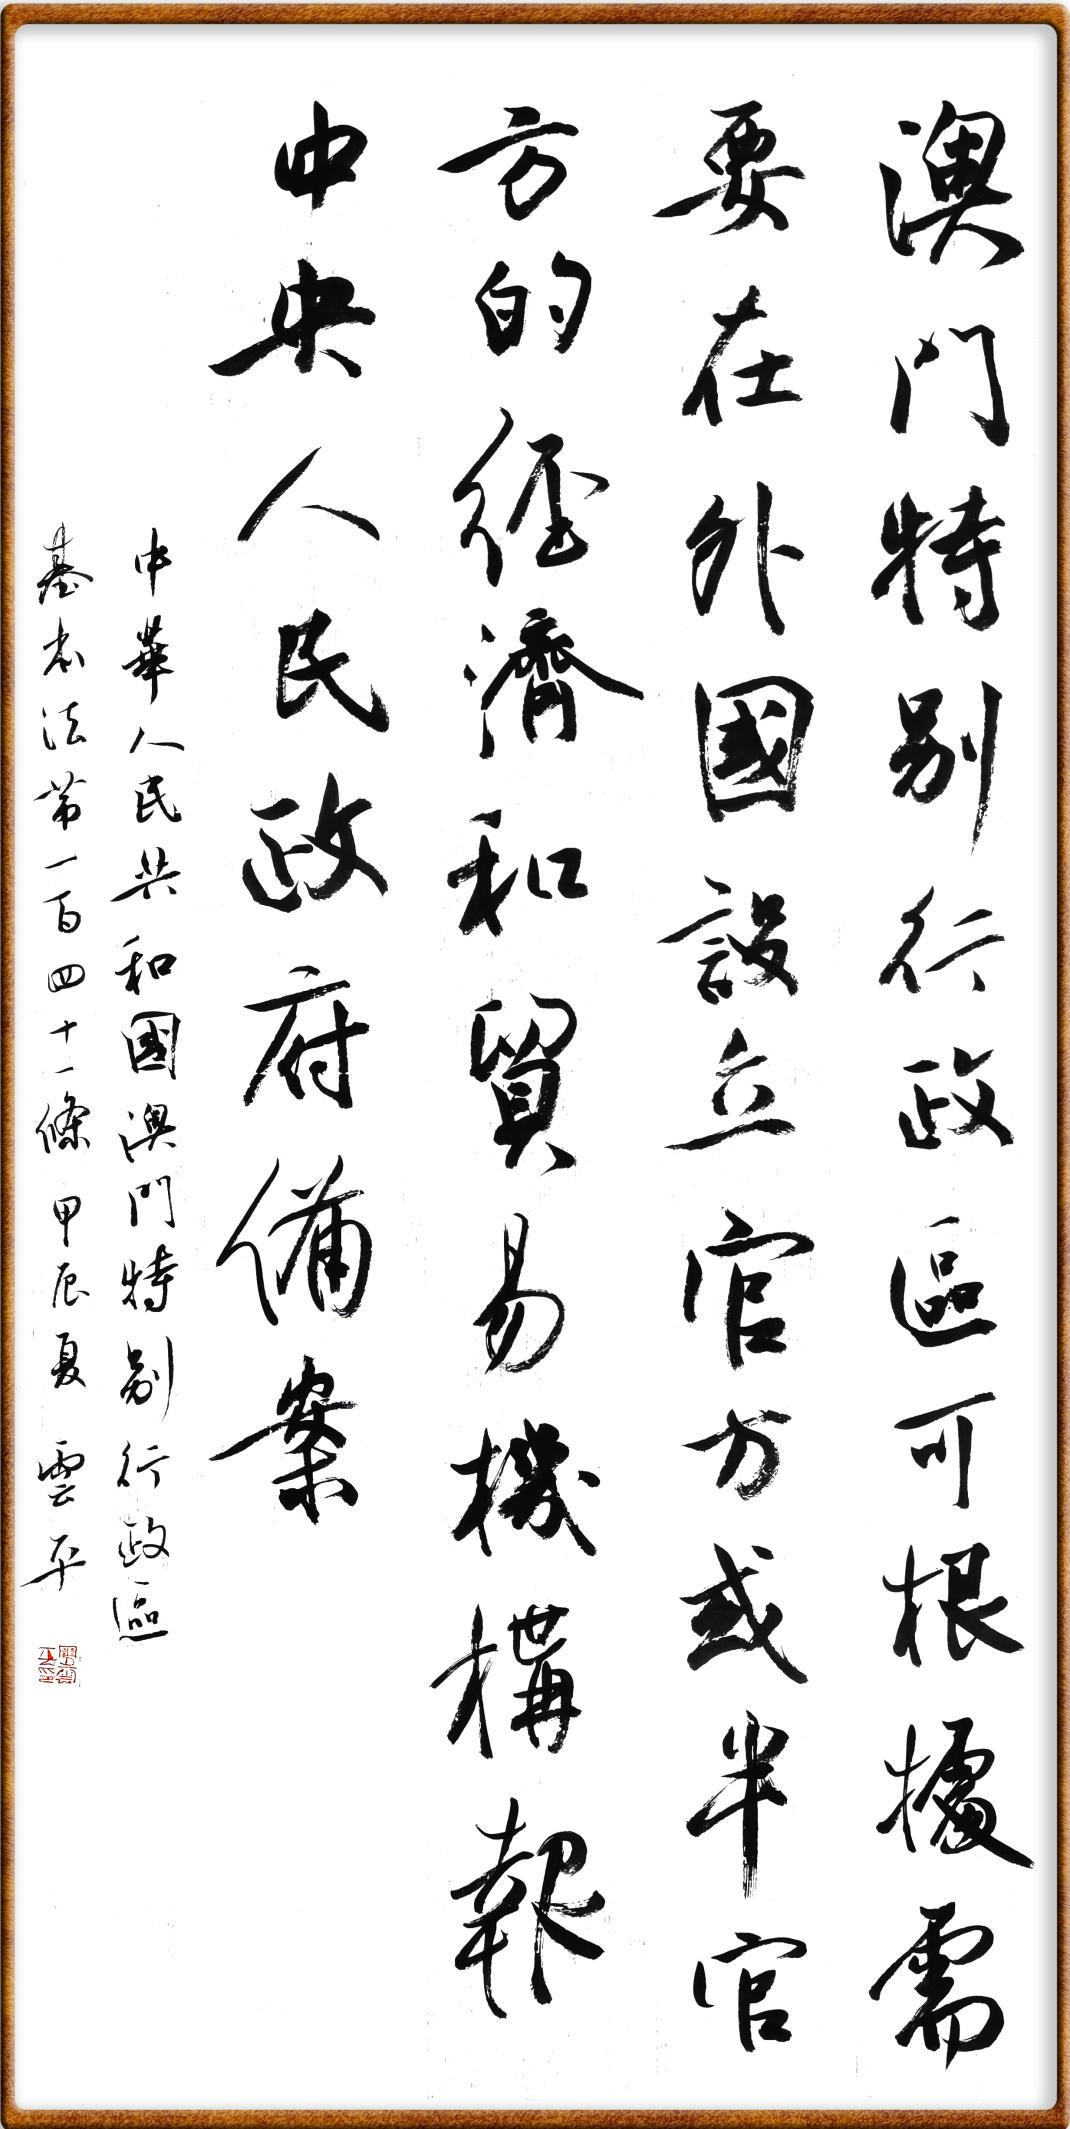 澳門特別行政區可根據需
要在外國設立官方或半官
方的經濟和貿易機構報
中央人民政府備案
中華人民共和國澳門特別行政區
基本法第一百四十一條 甲辰夏 雲平